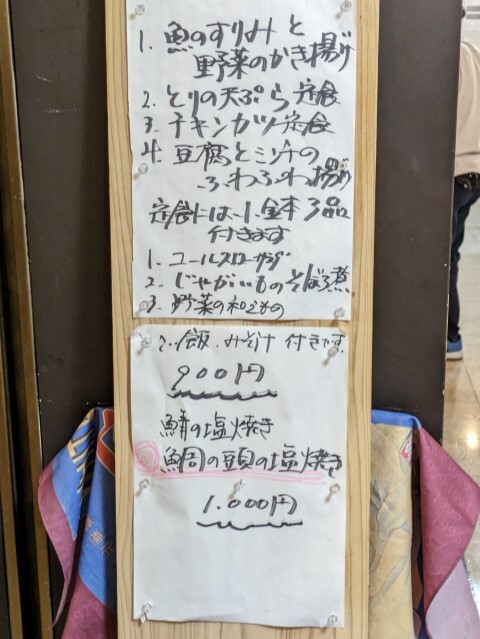 1. 魚のすりみと
野菜のかき揚げ
2. とりの天ぷら定食
3. チキンカツ定食
4. 豆腐とミンチの
ふわふわ揚げ
定食には、小鉢3品
付きます
1. コールスローサラダ
2. じゃがいものそぼろ煮
3. 野菜の和えもの
ご飯、みそ汁 付きです。
900円
鯖の塩焼き
鯛の頭の塩焼き
1.000円